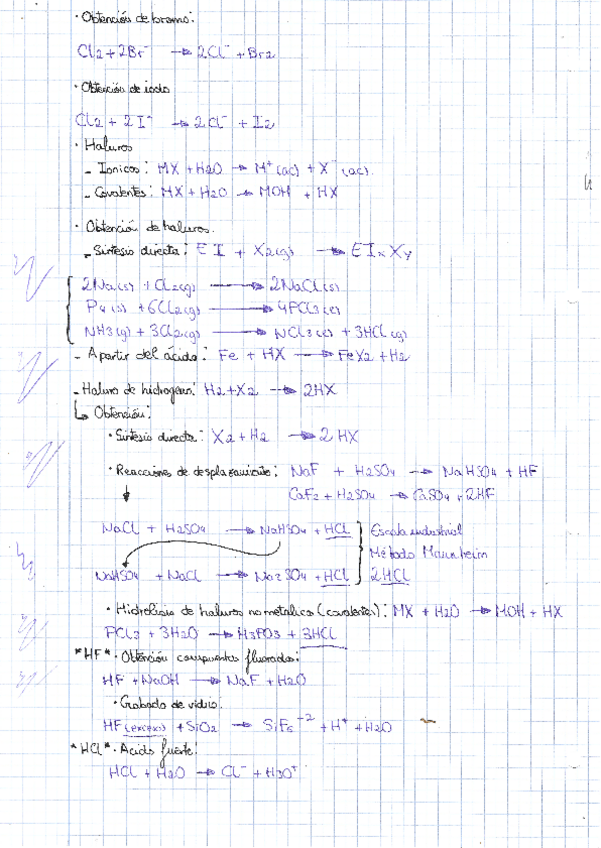 · Obtención de bromo:
Cl2 + 2Br⁻ → 2Cl⁻ + Br2
· Obtención de iodo
Cl2 + 2I⁻ → 2Cl⁻ + I2
· Haluros
- Ionicos: MX + H2O → M⁺(ac) + X⁻(ac)
- Covalentes: MX + H2O → MOH + HX
· Obtención de haluros.
- Sintesis directa: EI + X2(g) → EIxXy
2Na(s) + Cl2(g) → 2NaCl(s)
P4(s) + 6Cl2(g) → 4PCl3(l)
NH3(g) + 3Cl2(g) → NCl3(l) + 3HCl(g)
- Apartir del ácido: Fe + HX → FeX2 + H2
- Haluro de hidrogeno: H2 + X2 → 2HX
↳ Obtención:
· Sintesis directa: X2 + H2 → 2HX
· Reacciones de desplazamiento: NaF + H2SO4 → NaHSO4 + HF
CaF2 + H2SO4 → CaSO4 + 2HF
NaCl + H2SO4 → NaHSO4 + HCl Escala industrial
Método Mannheim
NaHSO4 + NaCl → Na2SO4 + HCl 2HCl
· Hidrolisis de haluros no metalico (covalentes): MX + H2O → MOH + HX
PCl3 + 3H2O → H3PO3 + 3HCl
*HF* · Obtención compuestos fluorados:
HF + NaOH → NaF + H2O
· Grabado de vidrio:
HF(exceso) + SiO2 → SiF6⁻² + H⁺ + H2O
*HCl* · Acido fuerte:
HCl + H2O → Cl⁻ + H3O⁺